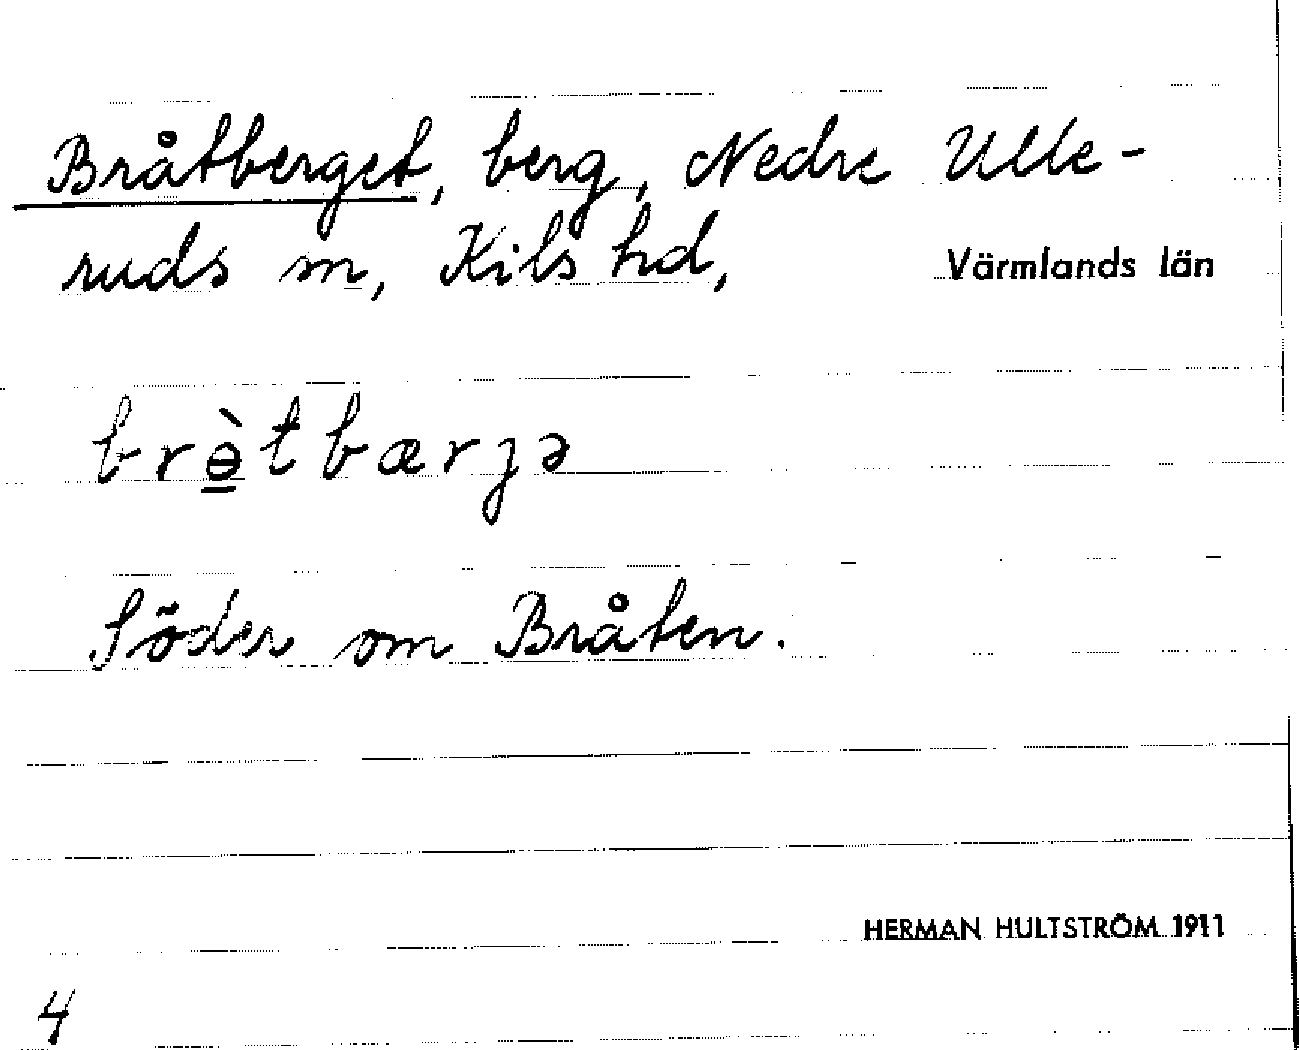 Bråtberget, berg, Nedre Ulle-
ruds sn, Kils hd, Värmlands län
brɵ̠̀tbærjə
Söder om Bråten.
HERMAN HULTSTRÖM 1911
4